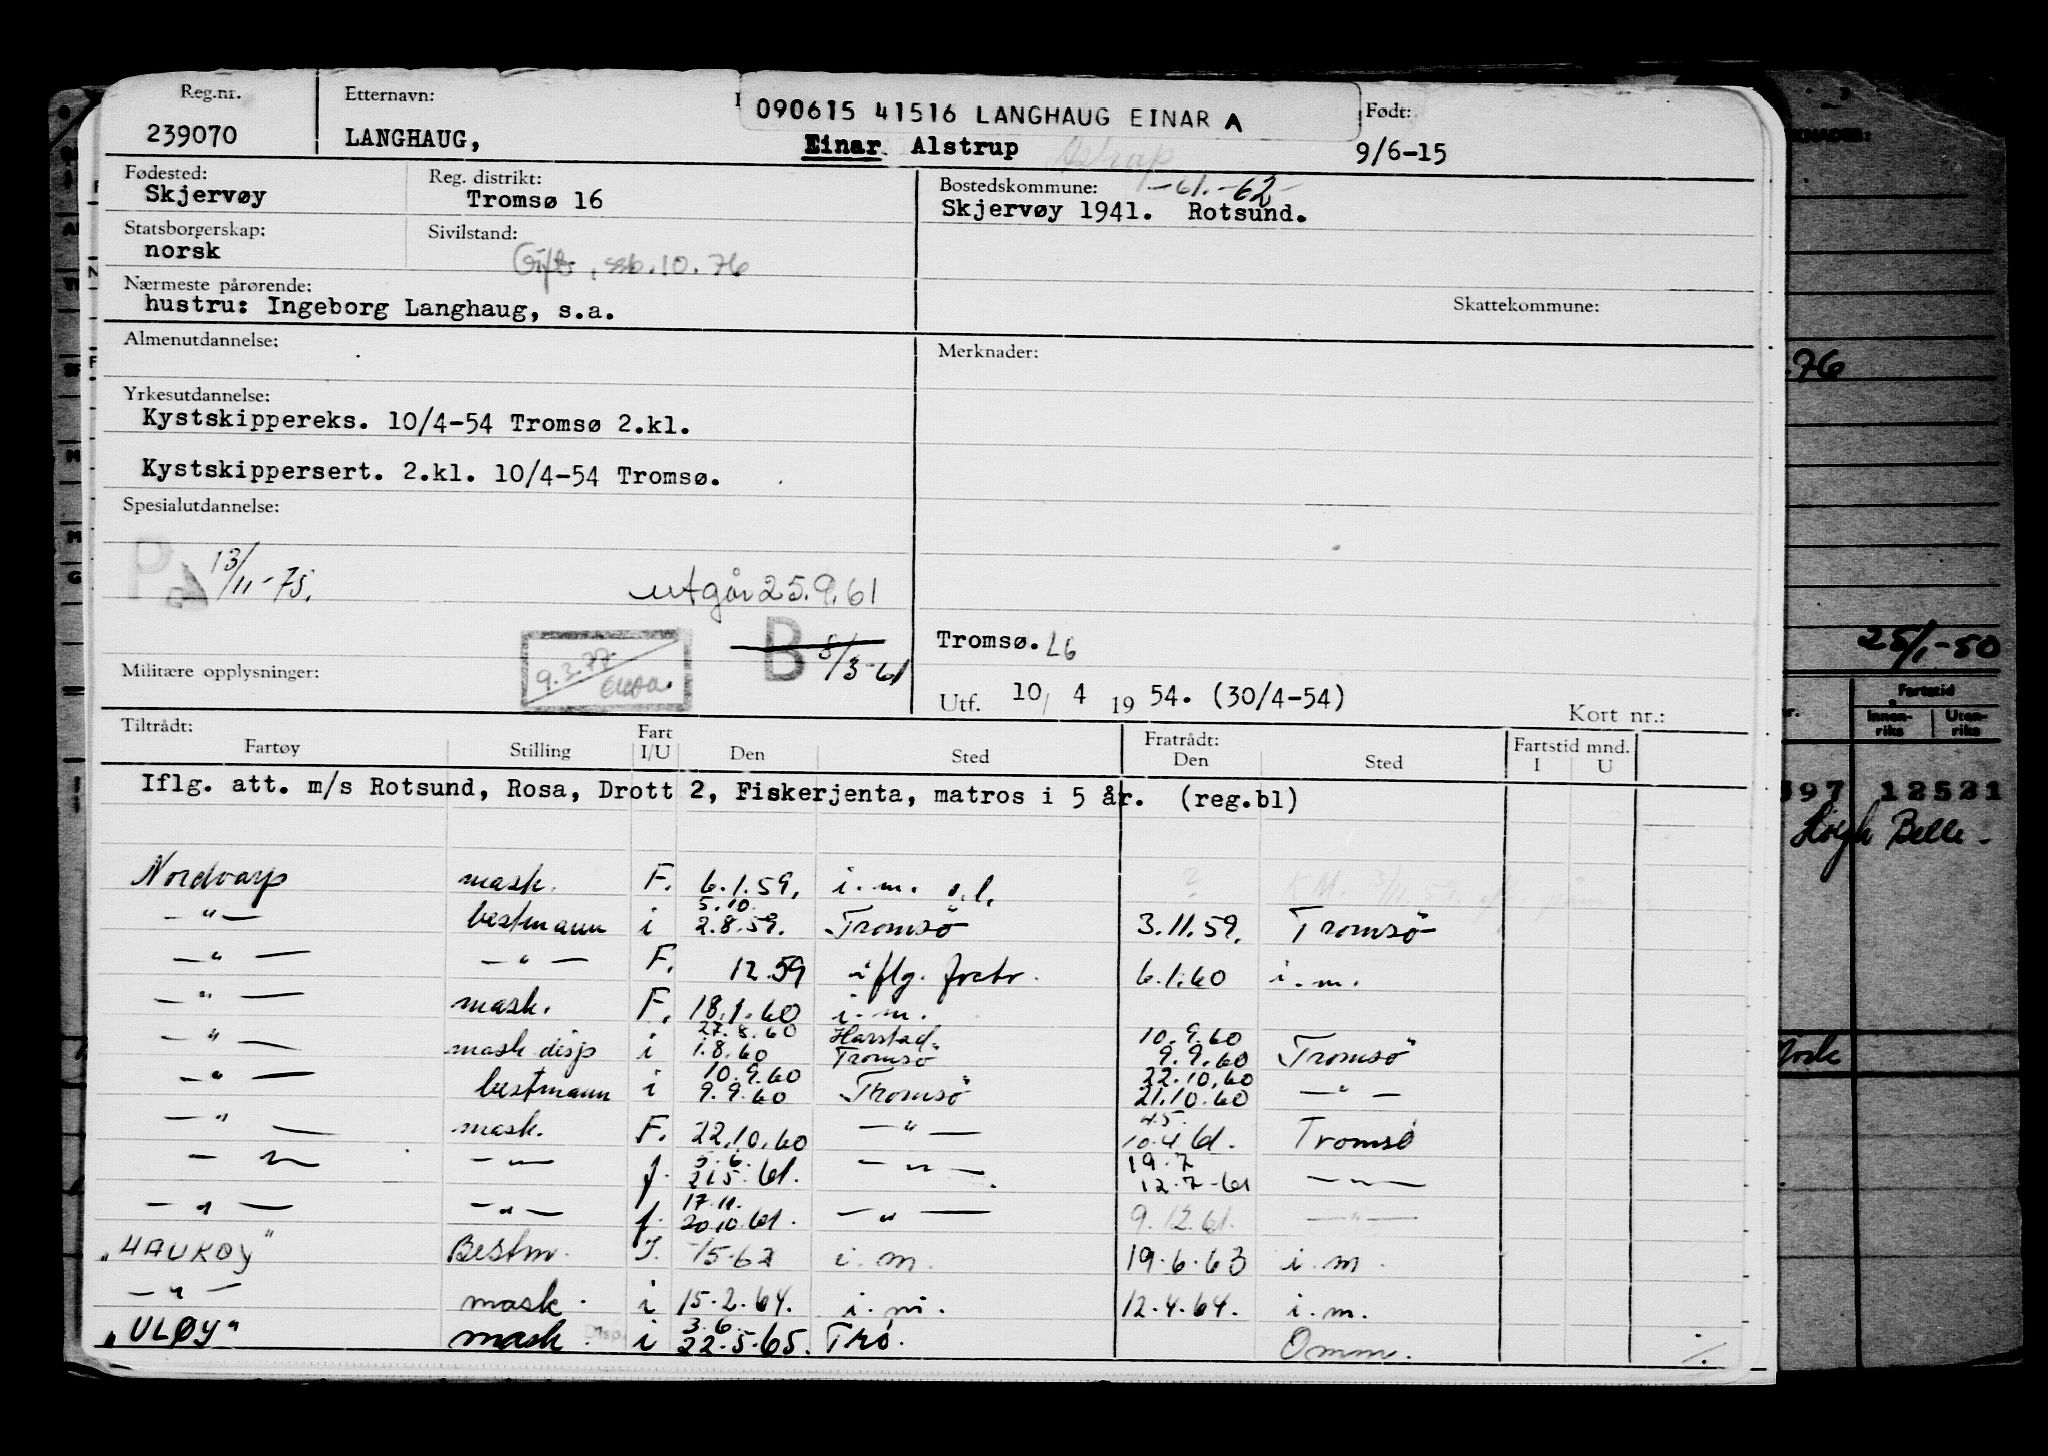 Reg.nr. Etternavn: 090615 41516 LANGHAUG EINAR A Født:
239070 LANGHAUG, Einar Alstrup 9/6-15
Fødested: Reg. distrikt: Bostedskommune: -61.-62-
Skjervøy Tromsø 16 Skjervøy 1941. Rotsund.
Statsborgerskap: Sivilstand:
norsk Gift, ssb.10.76
Nærmeste pårørende:
hustru: Ingeborg Langhaug, s.a. Skattekommune:
Almenutdannelse: Merknader:
Yrkesutdannelse:
Kystskippereks. 10/4-54 Tromsø 2.kl.
Kystskippersert. 2.kl. 10/4-54 Tromsø.
Spesialutdannelse:
P 13/11-75. utgår 25.9.61
B 8/3-61 Tromsø. L6
Militære opplysninger: 9.3.77
Utf. 10/ 4 19 54. (30/4-54) Kort nr.:
Tiltrådt: Fart Fratrådt: Fartstid mnd.
Fartøy Stilling I/U Den Sted Den Sted I U
Iflg. att. m/s Rotsund, Rosa, Drott 2, Fiskerjenta, matros i 5 år. (reg.bl)
Nordvarp mask. F. 6.1.59. i.m. e.l. ?
—"— bestmann i 5.10. 2.8.59. Tromsö 3.11.59. Tromsö
—"— —"— F. 12.59 iflg. fratr. 6.1.60 i.m.
—"— mask. F. 18.1.60 i.m.
—"— mask disp i 27.8.60 1.8.60 Harstad Tromsö 10.9.60 9.9.60 Tromsö
—"— bestmann i 10.9.60 9.9.60 Tromsö 22.10.60 21.10.60 —"—
—"— mask. F. 22.10.60 —"— 4.5. 10.4.61. Tromsö
—"— —"— f. 5.6. 21.5.61. —"— 19.7 12.7-61 —"—
—"— —"— f. 17.11. 20.10.61. —"— 9.12.61. —"—
"HAUKØY" Bestm. I. 15-62 i.m. 19.6.63 i.m.
—"— mask. i 15.2.64. i.m. 12.4.64. i.m.
"ULØY" mask. Disp. i 3.6. 22.5.65. Trö. Omm. ./.
76
25/1-50
Fartstid
Innenriks Utenriks
397 12521
Höegh Belle -